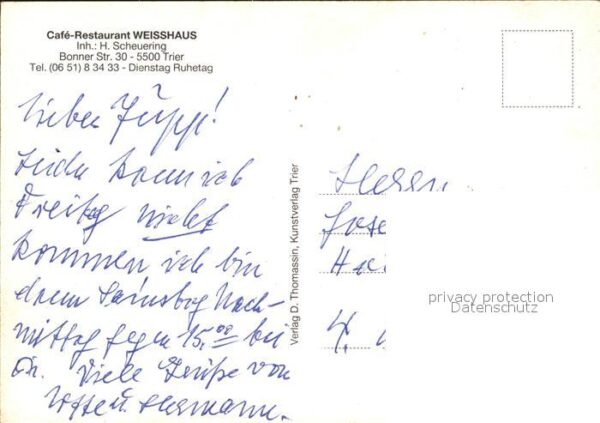 Café-Restaurant WEISSHAUS
Inh.: H. Scheuering
Bonner Str. 30 - 5500 Trier
Tel. (06 51) 8 34 33 - Dienstag Ruhetag
Lieber Jupp!
Leider kann ich
Freitag nicht
kommen ich bin
dann Samstag Nach-
mittag gegen 15.00 bei
Dir. Viele Grüße von
Hermann.
Verlag D. Thomassin, Kunstverlag Trier
Herrn
Jose
privacy protection
Datenschutz